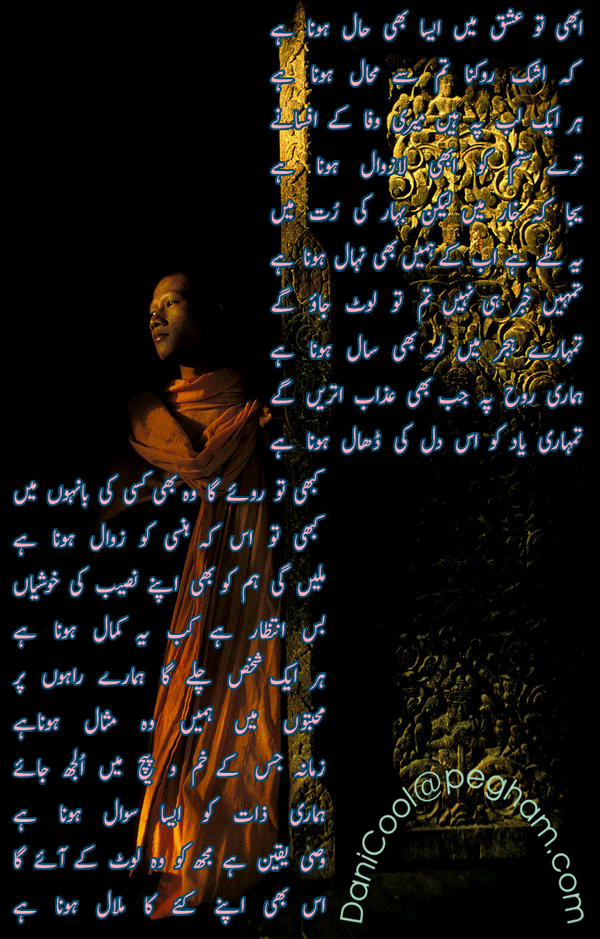 ابھی تو عشق میں ایسا بھی حال ہونا ہے
کہ اشک روکنا تم سے محال ہونا ہے
ہر ایک لب پہ ہیں میری وفا کے افسانے
ترے ستم کو ابھی لازوال ہونا ہے
بجا کہ خار ہیں لیکن بہار کی رُت میں
یہ طے ہے اب کے ہمیں بھی نہال ہونا ہے
تمہیں خبر ہی نہیں تم تو لوٹ جاؤ گے
تمہارے ہجر میں لمحہ بھی سال ہونا ہے
ہماری روح پہ جب بھی عذاب اتریں گے
تمہاری یاد کو اس دل کی ڈھال ہونا ہے
کبھی تو روئے گا وہ بھی کسی کی بانہوں میں
کبھی تو اس کہ ہنسی کو زوال ہونا ہے
ملیں گی ہم کو بھی اپنے نصیب کی خوشیاں
بس انتظار ہے کب یہ کمال ہونا ہے
ہر ایک شخص چلے گا ہمارے راہوں پر
محبتوں میں ہمیں وہ مثال ہوناہے
زمانہ جس کے خم و پیچ میں اُلجھ جائے
ہماری ذات کو ایسا سوال ہونا ہے
وصی یقین ہے مجھ کو وہ لوٹ کے آئے گا
اس بھی اپنے کئے کا ملال ہونا ہے
DaniCool@pegham.com